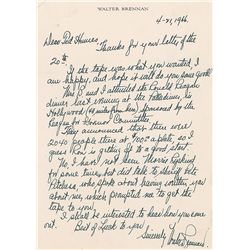 WALTER BRENNAN
4-21, 1966
Dear Ted Humes
Thanks for your letter of the
20th.
If the tape was what you wanted, I
am happy, and hope it will do you some good.
Mrs B and I attended the Ronald Reagan
dinner last evening at the Palladium, in
Hollywood (48 miles from here) sponsored by the
League for Common Committee.
They announced that there were
2040 people there at $ a plate. so I
guess Ron is getting off to a good start.
No, I have not seen Morris Ryskind
for some time, but did talk to
Pitchess, who spoke about having written you
about me, which prompted me to get the
tape to you.
I shall be interested to hear how you come
out.
Best of Luck to you
Sincerely Walter Brennan